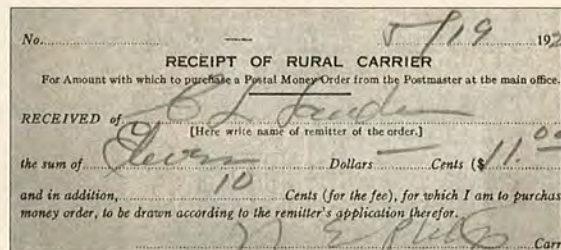 No. — 5/19 192
RECEIPT OF RURAL CARRIER
For Amount with which to purchase a Postal Money Order from the Postmaster at the main office.
RECEIVED of C L
[Here write name of remitter of the order.]
the sum of Eleven Dollars — Cents ($11.00
and in addition, 10 Cents (for the fee), for which I am to purchas
money order, to be drawn according to the remitter's application therefor.
Carr